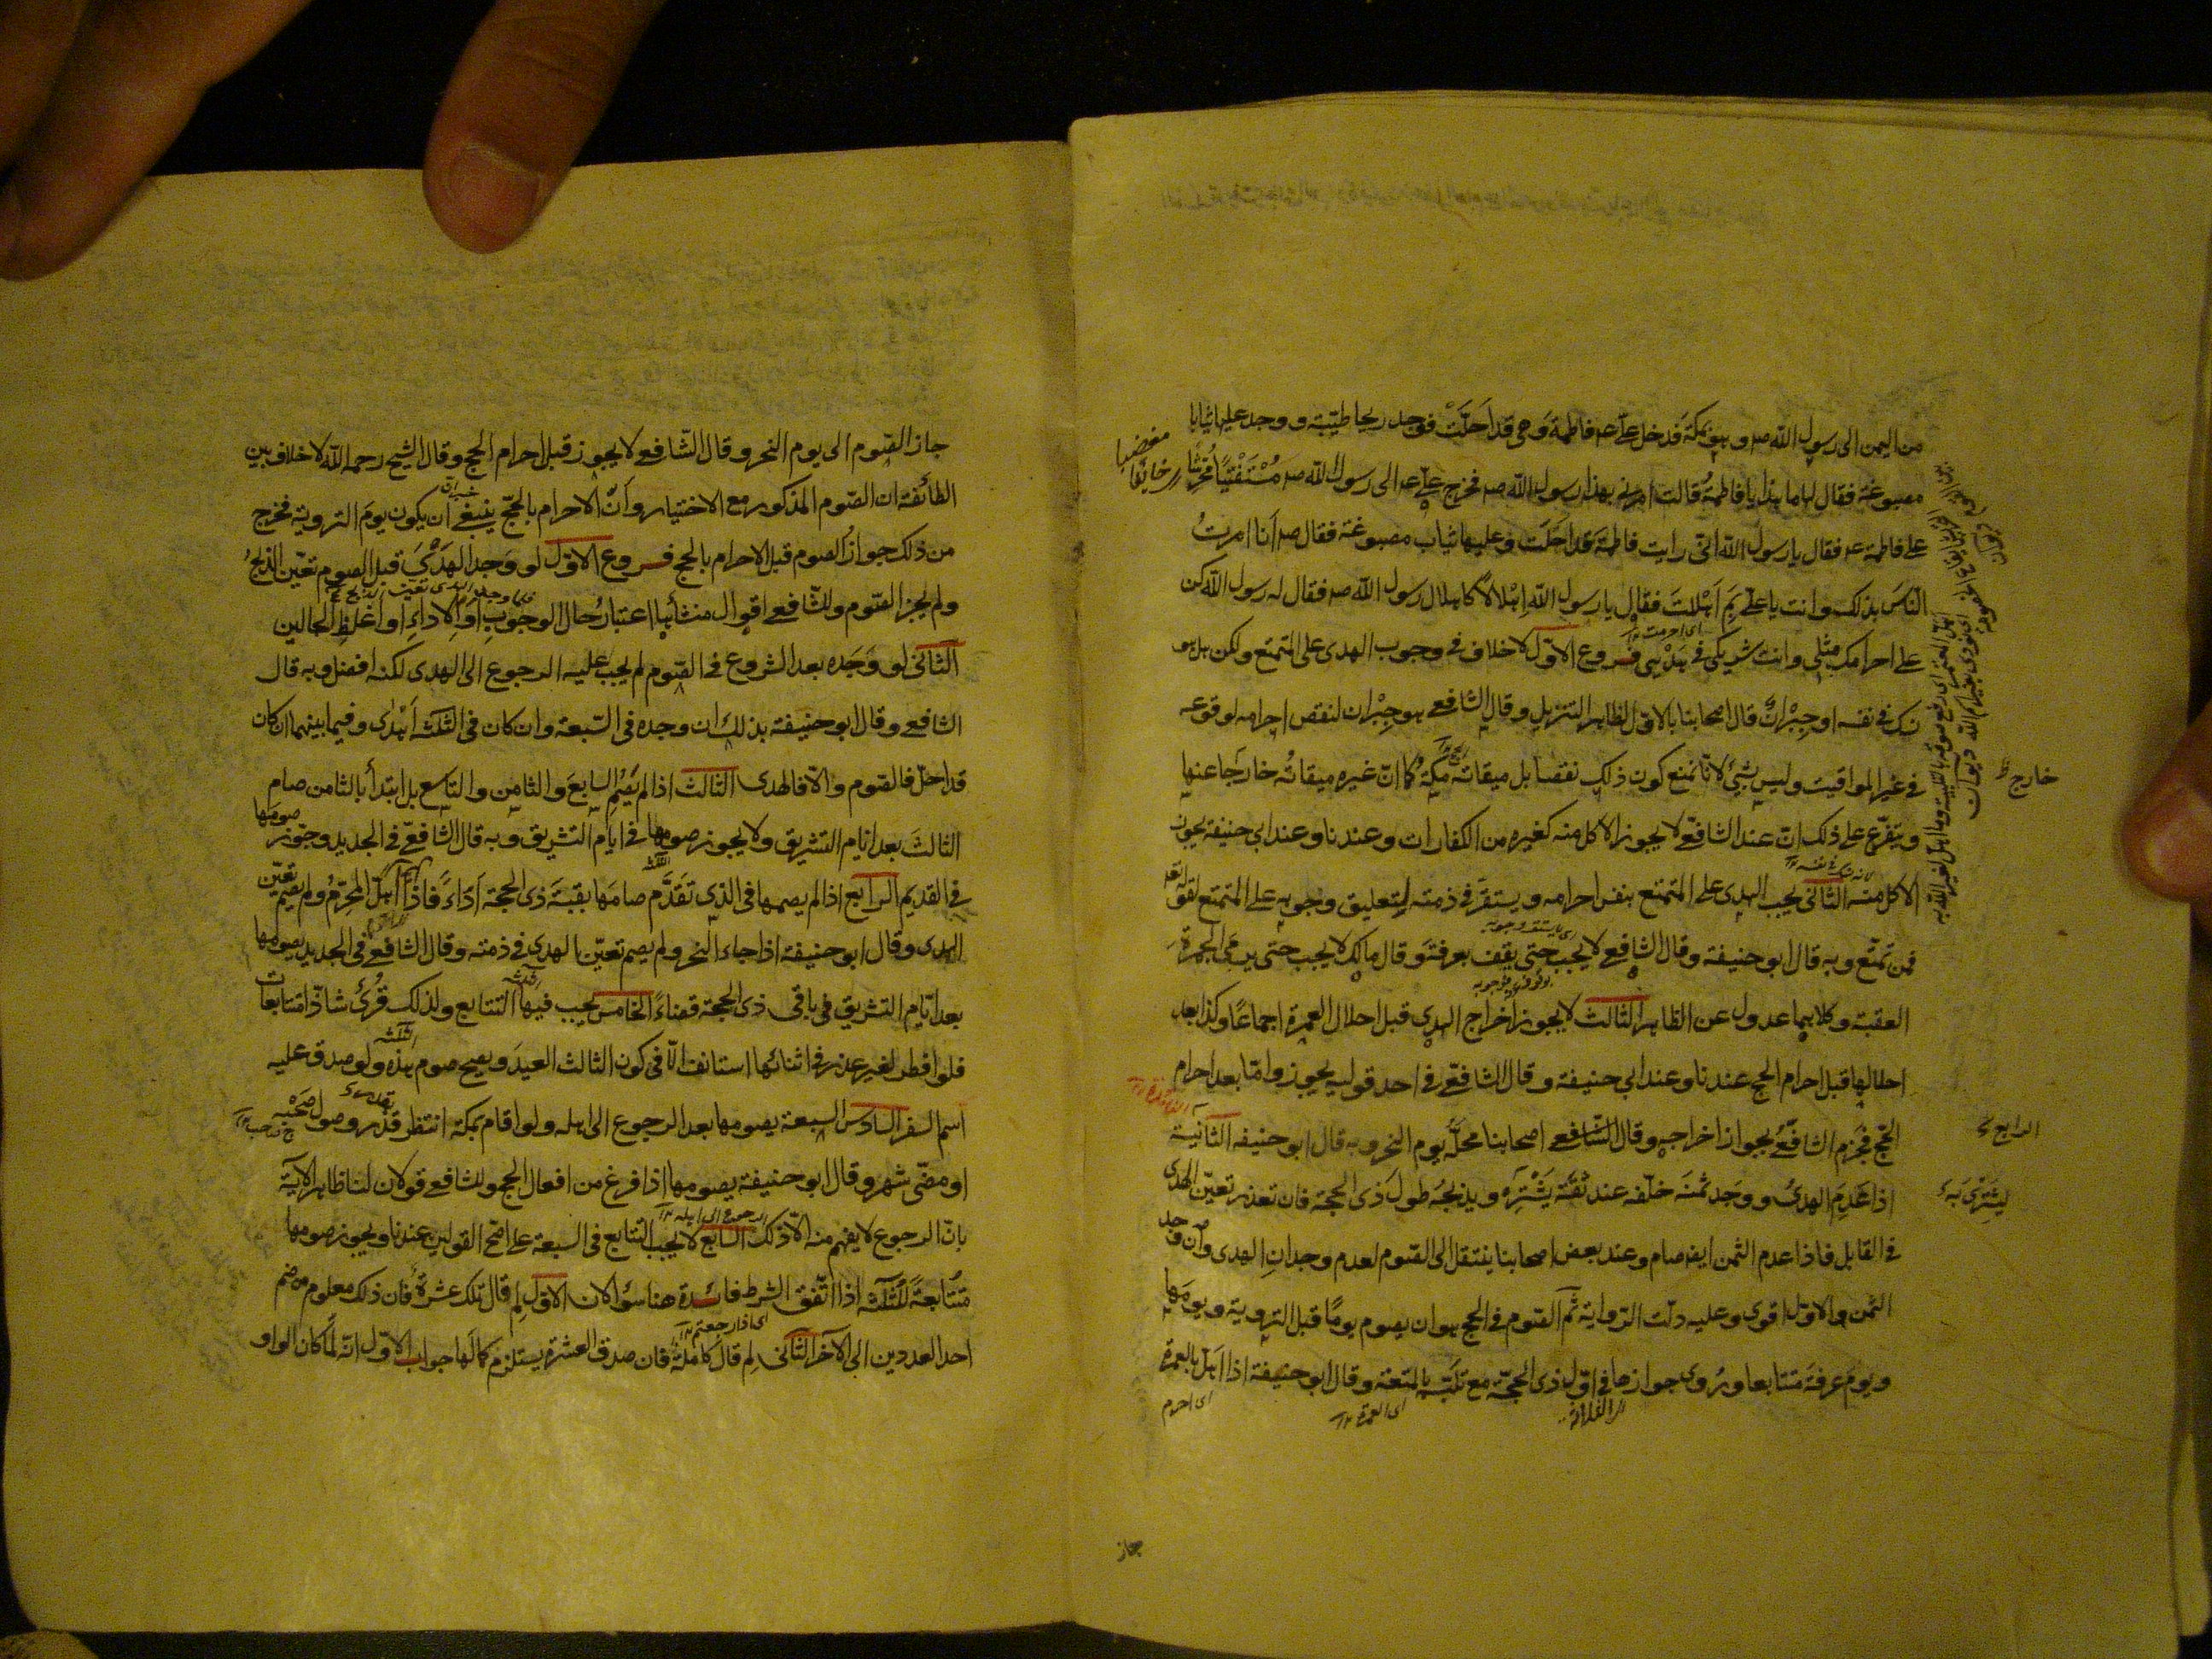 من اليمن الى رسول الله صه و هو بمكة فدخل على عه فاطمة و هى قد احلّت فوجد ريحا طيّبة و وجد عليها ثيابا
مصبوغة فقال لها ما هذا يا فاطمةُ قالت امرنى بهذا رسول الله صه فخرج على عه الى رسول الله صه مُسْتَفْتِيًا مُحَرِّشًا
على فاطمة عه فقال يا رسول الله انّى رايت فاطمة قد احلّت و عليها ثياب مصبوغة فقال صه أنا امرتُ
الناسَ بذلك و انت يا على بِمَ اَهْلَلتَ فقال يا رسول الله اِهْلالًا كاهلال رسول الله صه فقال له رسول الله كن
على احرامك مثلى و انت شريكى فى هَدْيى فروع الاوّل لا خلاف فى وجوب الهدى على المتمتع ولكن هل هو
نسك فى نفسه او جِبْرانٌ قال اصحابنا بالاوّل لظاهر التنزيل و قال الشافعى هو جِبْران لنقص احرامه لوقوعه
فى غير المواقيت و ليس بشئ لانّا نمنع كون ذلك نقصا بل ميقاته مكة كما انّ غيره ميقاتُه خارجا عنها
و يتفرّع على ذلك انّ عند الشافعىّ لا يجوز الاكل منه كغيره من الكفارات و عندنا و عند ابى حنيفة يجوز
الاكل منه الثانى يجب الهدى على المتمتع بنفس احرامه و يستقرّ فى ذمته لتعليق وجوبه على المتمتع لقوله تعه
فمن تمتّع و به قال ابو حنيفة و قال الشافعى لا يجب حتى يقف بعرفة و قال مالك لا يجب حتى يرمى الجمرة
العقبة و كلاهما عدول عن الظاهر الثالث لا يجوز اخراج الهدى قبل احلال العمرة اجماعًا و كذا بعد
احلالها قبل احرام الحج عندنا و عند ابى حنيفة و قال الشافعىّ فى احد قوليه يجوز و امّا بعد احرام
الحجّ فجزم الشافعىّ بجواز اخراجه و قال الشافعى اصحابنا محلّه يوم النحر و به قال ابو حنيفه الثانية
اذا عَدِمَ الهدىُ و وجَد ثمنَه خلّفه عند ثقة يَشْتَرِه و يذبحُه طولَ ذى الحجة فان تعذر تعيّن الهدى
فى القابل فاذا عدم الثمن ايض صام و عند بعض اصحابنا ينتقل الى الصّوم لعدم وجدانِ الهدى و ان وجد
الثمن و الاوّل اقوى و عليه دلّت الرّواية ثم الصّوم فى الحج هو ان يصوم يومًا قبل التروية و يومَها
و يوم عرفة متتابعا و رُوى جوازها فى اوّل ذى الحجّة مع تلبّسه بالمتعة و قال ابو حنيفة اذا اهلّ بالعمرة
خارج
الرابع
ليشترى به
اى احرم
اى العمرة
جاز
جاز الصّوم الى يوم النحر و قال الشّافعى لا يجوز قبل احرام الحج و قال الشيخ رحمه الله لا خلاف بين
الطائفة ان الصّوم المذكور مع الاختيار و اَنّ الاحرام بالحجّ ينبغى ان يكون يومَ التروية فخرج
من ذلك جوازُ الصوم قبل الاحرام بالحج فروع الاوّل لو وَجد الهَدْىَ قبل الصوم تعيّن الذبحُ
و لم يجز الصّوم و للشّافعى اقوال منشأها اعتبارُ حال الوجوب او الاداءِ او اغلظِ الحالين
الثانى لو وَجَده بعد الشروع فى الصّوم لم يجب عليه الرجوع الى الهدى لكنه افضل و به قال
الشافعى و قال ابو حنيفة بذلك ان وجده فى السّبعة و ان كان فى الثلثة اَهْدى و فيما بينهما ان كان
قد احلّ فالصّوم و الّا فالهدى الثالث اذا لم يَصُمِ السابعَ و الثامن و التاسع بل ابتدأ بالثامن صام
الثالثَ بعد ايّام التشريق و لا يجوز صومها فى ايّام التشريق و به قال الشافعىّ فى الجديد و جوّز صومَها
فى القديم الرابع اذا لم يصمها فى الذى تَقدَّم صامَها بقيّةَ ذى الحجة اَدَاءً فاذا اَهَلّ المحرّمُ و لم يصم تعيّن
الهدى و قال ابو حنيفة اذا جاء النحر و لم يصم تعيّن الهدى فى ذمته و قال الشافعى فى الجديد يصومها
بعد ايّام التشريق فى باقى ذى الحجة قضاءً الخامس يجب فيها التتابع و لذلك قُرئَ شاذّا متتابعات
فلو افطر لغير عذر فى اثنائها استانف الّا فى كون الثالث العيدَ و يصح صوم هذه و لو صدق عليه
اسم السفر السادس السبعة يصومها بعد الرجوع الى اهله و لو اقام بمكة انتظر قدر وصول صَحْبِه
او مضّى شهر و قال ابو حنيفة يصومها اذا فرغ من افعال الحج و للشافعى قولان لنا ظاهر الآية
بانّ الرجوع لا يفهم منه الّا ذلك السابع لا يجب التتابع فى السبعة على اصح القولين عندنا و يجوز صومها
متتابعةً للثلثة اذا اتّفق الشرط فائدة هنا سؤالان الاوّل لِم قال تلك عشرة فان ذلك معلوم من ضم
احد العددين الى الآخر الثانى لم قال كاملة فان صدق العشرة يستلزم كمالَها جواب الاوّل انّه لمّا كان الواو